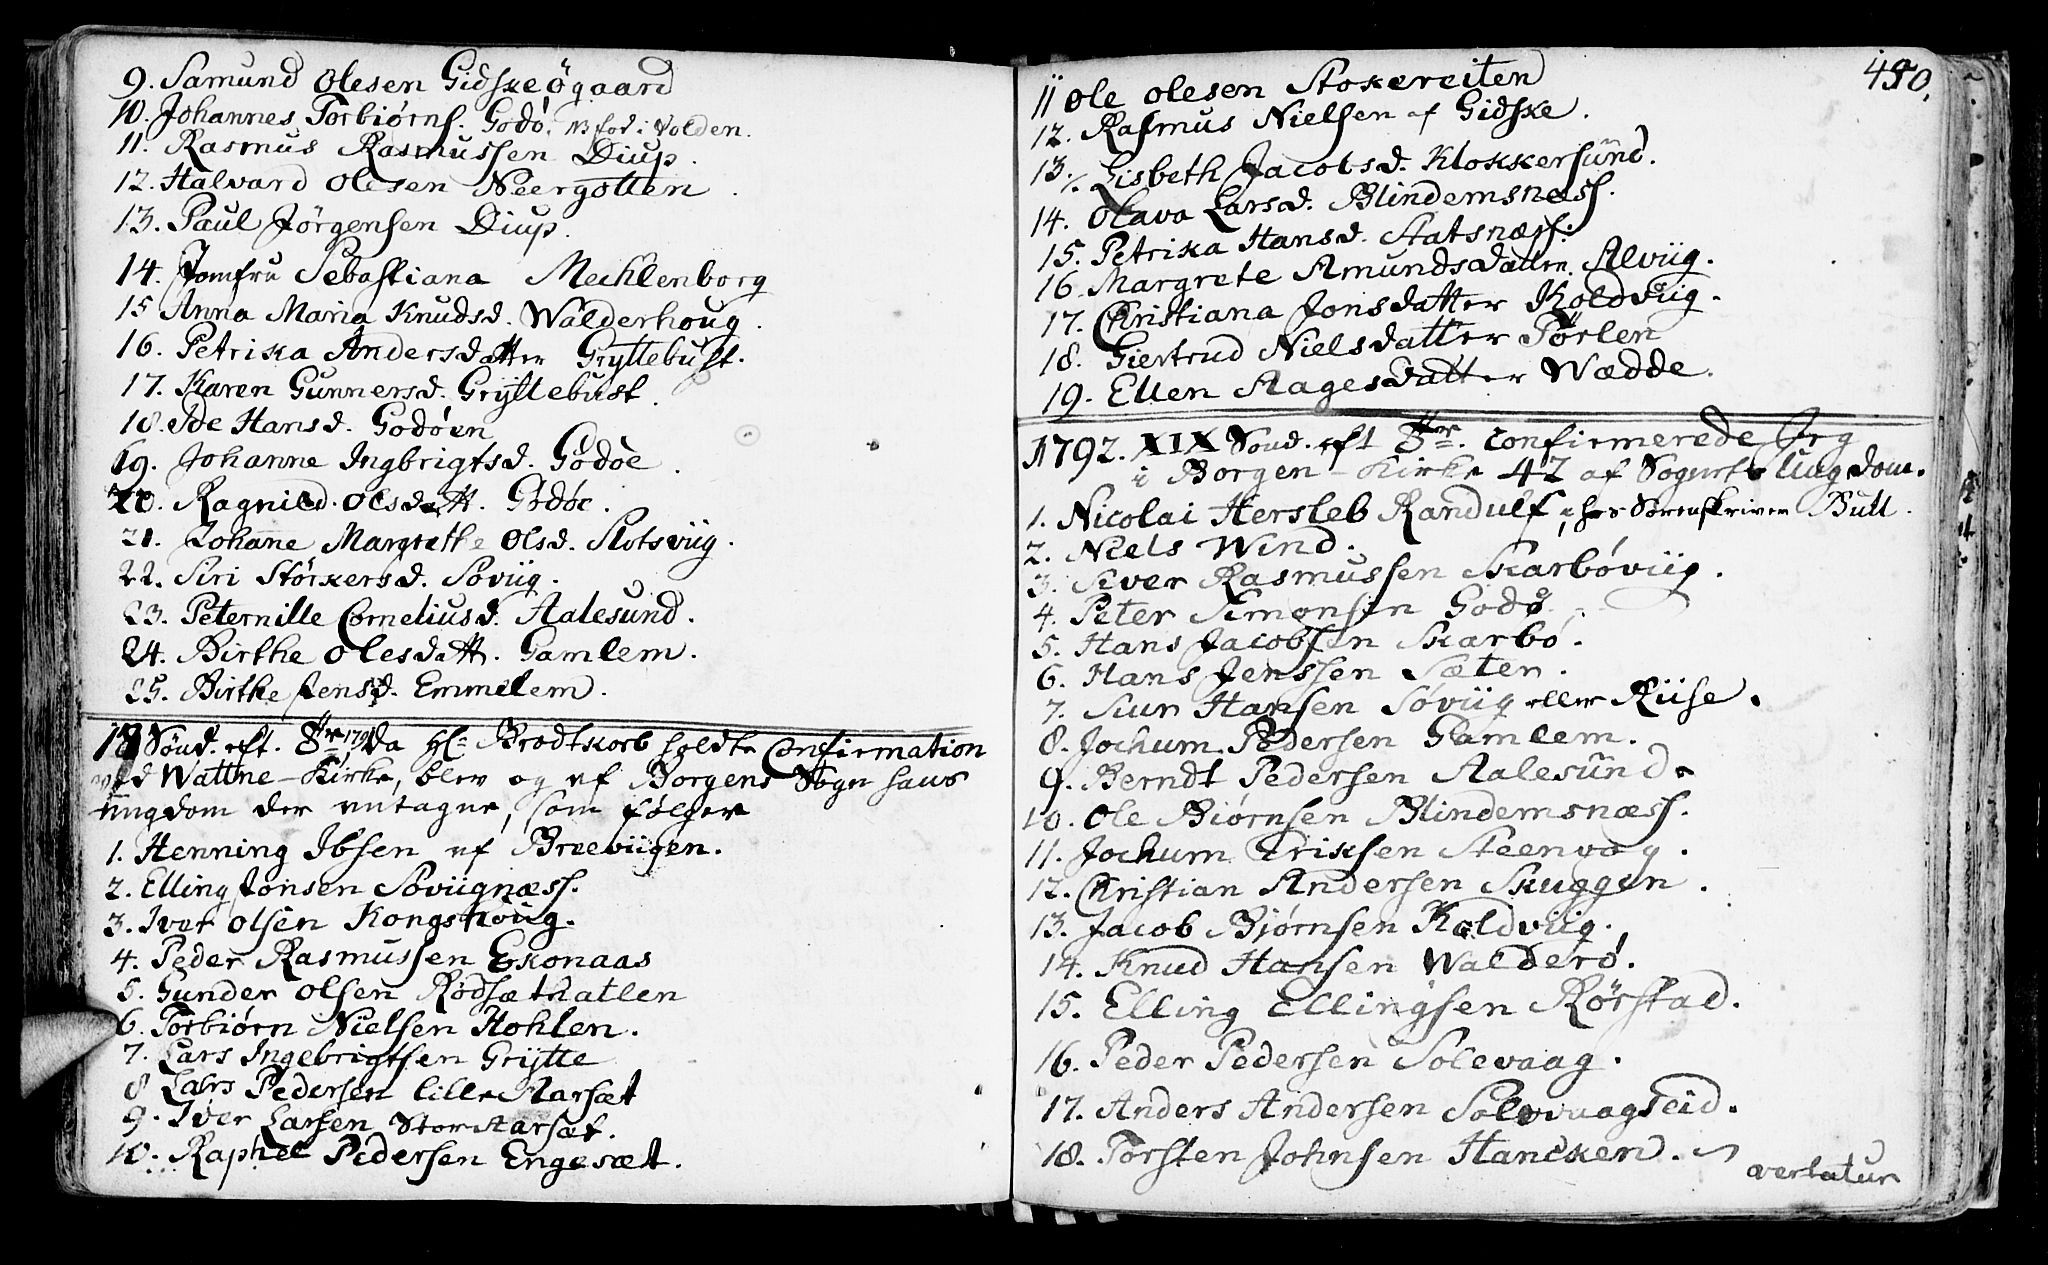 9. Samund Olesen Gidskeøgaard
10. Johannes Torbiørns. Godø. NB fød i Volden.
11. Rasmus Rasmussen Diup.
12. Halvard Olesen Neergotten.
13. Paul Jørgensen Diup.
14. Jomfru Sebastiana Mechlenborg
15 Anna Maria Knudsd. Walderhoug.
16. Petrika Andersdatter Gryttebust.
17. Karen Gunnersd. Gryttebust.
18. Ide Hansd. Godøen
19. Johanne Ingbrigtsd. Godøe.
20. Ragnild Olsdatt. Godøe.
21. Johane Margrethe Olsd. Slotsviig.
22. Siri Størkersd. Søviig.
23. Peternille Corneliusd. Aalesund.
24. Birthe Olesdatt. Gamlem.
25. Birthe Jensd. Emmelem.
18 Sønd. eft. Tr. 1791 da Hr. Brodtkorb holdte Confirmation
ved Wattne-Kirke, blev og af Borgens Sogn hans
ungdom der antagne, som følger
1. Henning Ibsen af Breeviigen.
2. Elling Jonsen Søviignæss.
3. Iver Olsen Kongshoug.
4. Peder Rasmussen Ekonaas
5. Gunder Olsen Rødsæthatlen
6. Torbiørn Nielsen Hohlen.
7. Lars Ingebrigtsen Grytte
8 Lars Pedersen lille Aarsæt
9. Iver Larsen Stor Aarsæt.
10. Raphel Pedersen Engesæt.
450.
11 Ole Olesen Stokereiten
12. Rasmus Nielsen af Gidske.
13. Lisbeth Jacobsd. Klokkersund.
14. Olava Larsd. Blindemsnæss.
15. Petrika Hansd. Statsnæss.
16 Margrete Amundsdatter. Alviig.
17. Christiana Jonsdatter Koldviig.
18. Giertrud Nielsdatter Tørlen
19. Ellen Aagesdatter Wædde.
1792. XIX Sønd. eft Tr. confirmerede Jeg
i Borgen-Kirke 42 af Sognets Ungdom.
1. Nicolai Hersleb Randulf, hos Sorenskriver Bull.
2. Niels Wind.
3. Siver Rasmussen Skarbøviig.
4. Peter Simonsen Godø.
5. Hans Jacobsen Skarbø.
6. Hans Jenssen Sæter.
7. Siur Hansen Søviig eller Riise.
8. Jochum Pedersen Gamlem.
9. Berndt Pedersen Aalesund.
10. Ole Biørnsen Blindemsnæss.
11. Jochum Eriksen Steenvog.
12. Christian Andersen Skuggen.
13. Jacob Bjørnsen Koldviig.
14. Knud Hansen Walderø.
15. Elling Ellingsen Rørstad.
16. Peder Pedersen Solevaag.
17. Anders Andersen Solevaagseid.
18. Torsten Johnsen Hancken.
vertatur